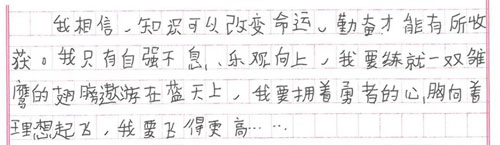 我相信,知识可以改变命运。勤奋才能有所收
获。我只有自强不息,乐观向上,我要练就一双雏
鹰的翅膀遨游在蓝天上,我要拥着勇者的心,胸向着
理想起飞,我要飞得更高……